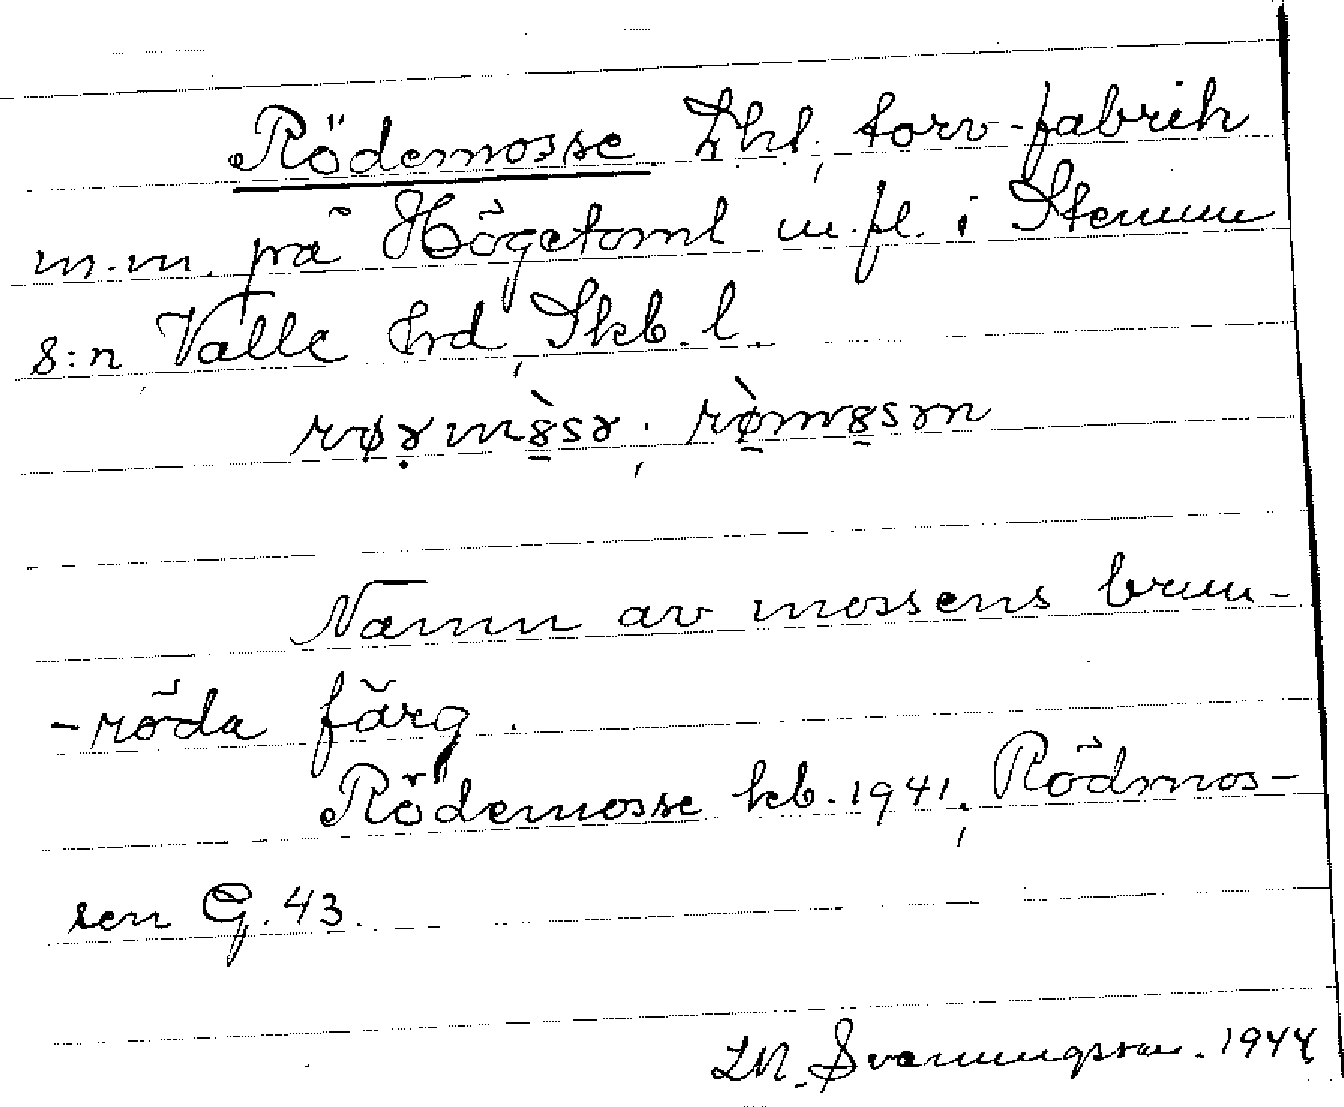 Rödemosse Lht, torv-fabrik
m.m. på Högetoml m.fl. i Stenum
s:n Valle hrd, Skb. l.
Namn av mossens brun-
-röda färg.
Rödemosse kb. 1941, Rödmos-
sen G. 43.
Svenungsson. 1944